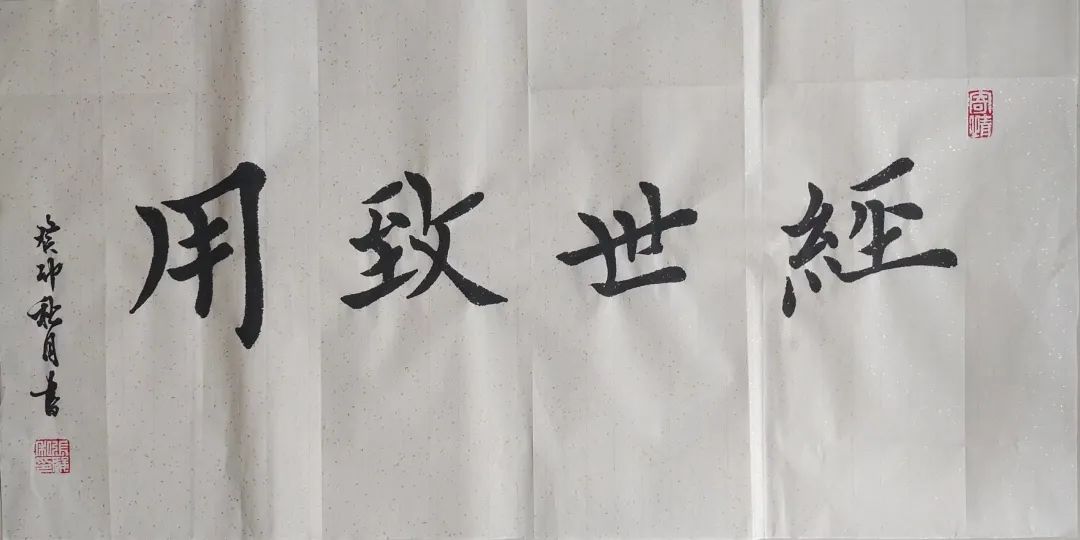 經世致用
癸卯秋月書